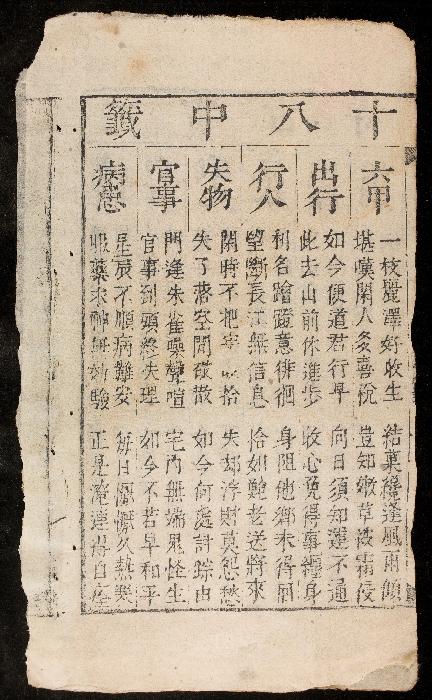 十八中籤
六甲
一枝豐澤好收生 結菓纔逢風雨傾
堪嘆閑人多喜悅 豈知嫩草被霜侵
出行
如今便道君行早 向日須知運不通
此去山前休進步 收心免得事纏身
行人
利名蹭蹬意徘徊 身阻他鄉未得回
望斷長江無信息 恰如鮑老送將來
失物
閑時不把牢收拾 失却浮財莫怨愁
失了落空閒欲散 如今何處討踪由
官事
門逢朱雀噪聲喧 宅內無端見怪生
官事到頭終失理 如今不若早和平
病患
星辰不順病難安 每日懨懨久熱
服藥求神無効驗 正是得自